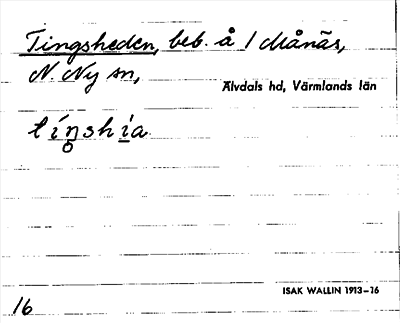 Tingsheden, beb. å 1 Månäs,
N. Ny sn,
Älvdals hd, Värmlands län
tíŋ̥shi̲a
ISAK WALLIN 1913–16
16